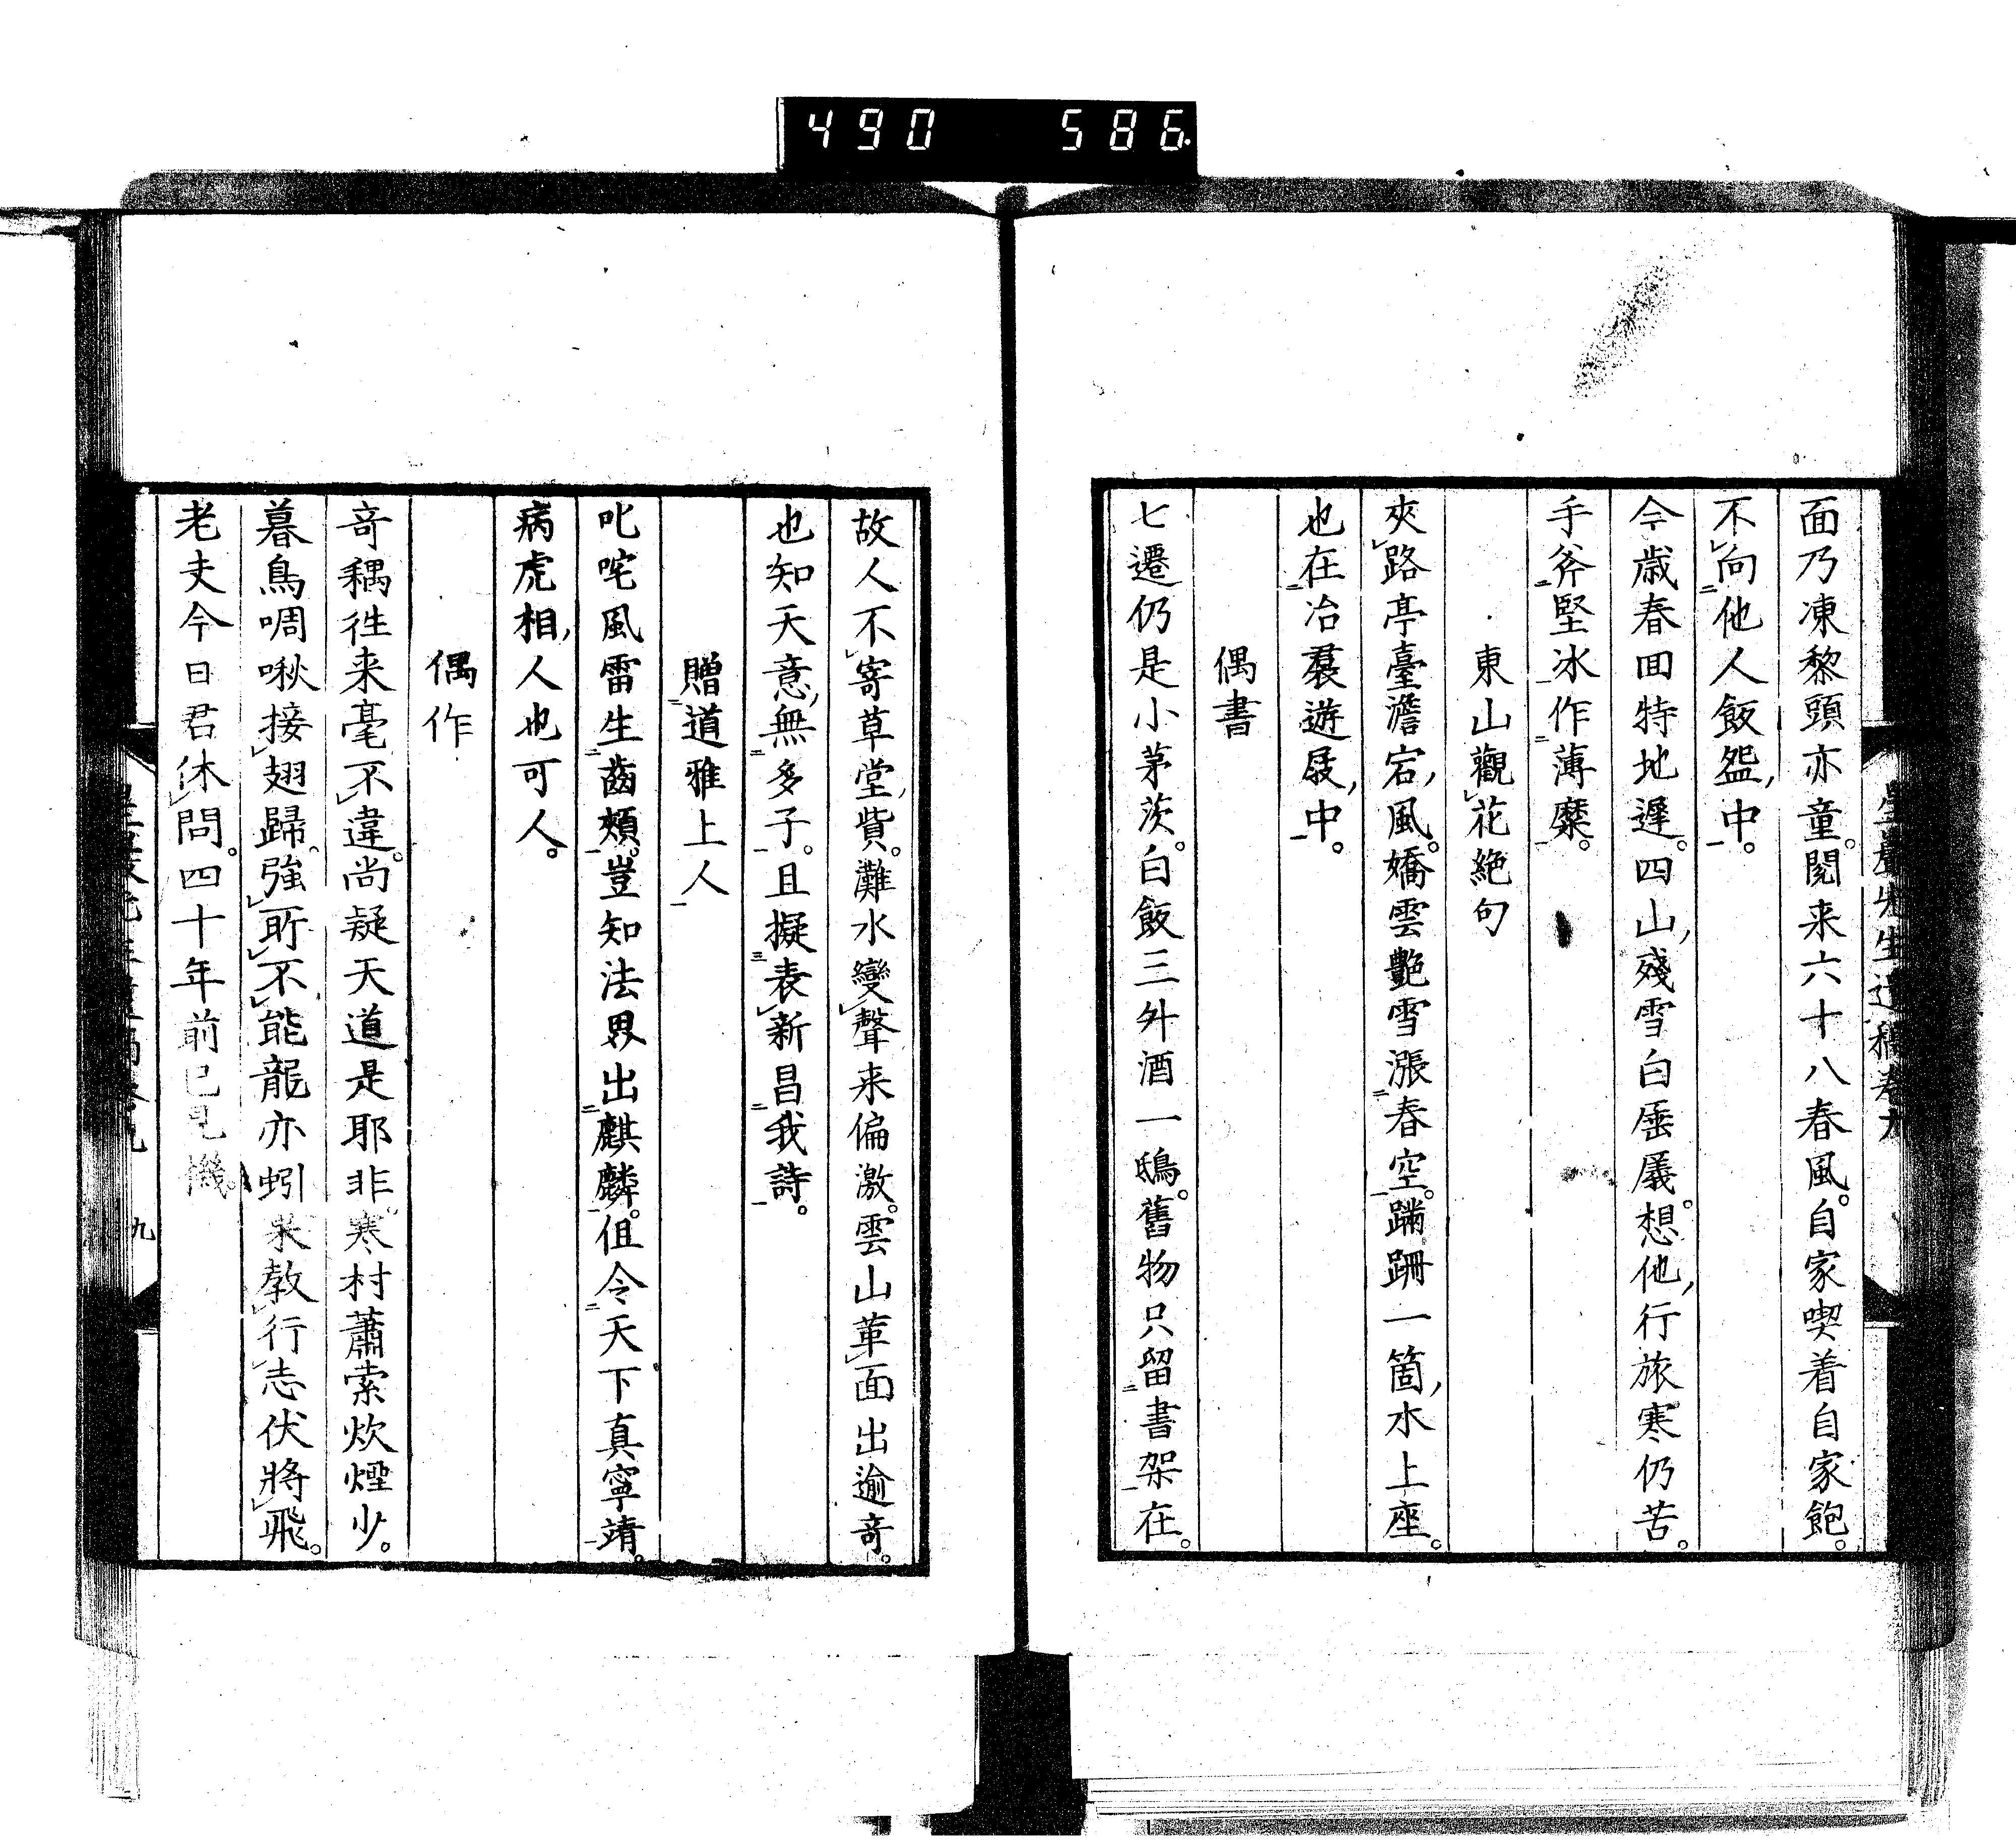 490 586
面乃凍黎頭亦童。閱来六十八春風。自家喫着自家飽。
不向他人飯盌中。
今歳春回特地遲。四山殘雪白厜㕒。想他行旅寒仍苦。
手斧堅冰作薄糜。
東山觀花絶句
夾路亭臺澹宕風。嬌雲艶雪漲春空。蹣跚一箇水上座。
也在冶裠遊屐中。
偶書
七遷仍是小茅茨。白飯三外酒一鴟。舊物只留書架在。
故人不寄草堂貲。灘水變聲来偏激。雲山革面出逾竒。
也知天意無多子。且擬表新昌我詩。
贈道雅上人
叱咤風雷生齒頰。豈知法界出麒麟。伹令天下真寧靖。
病虎相人也可人。
偶作
竒耦徃来毫不違。尚疑天道是耶非。寒村蕭索炊煙少。
暮鳥啁啾接翅歸。強所不能龍亦蚓。未敎行志伏將飛。
老夫今日君休問。四十年前已見機。
九